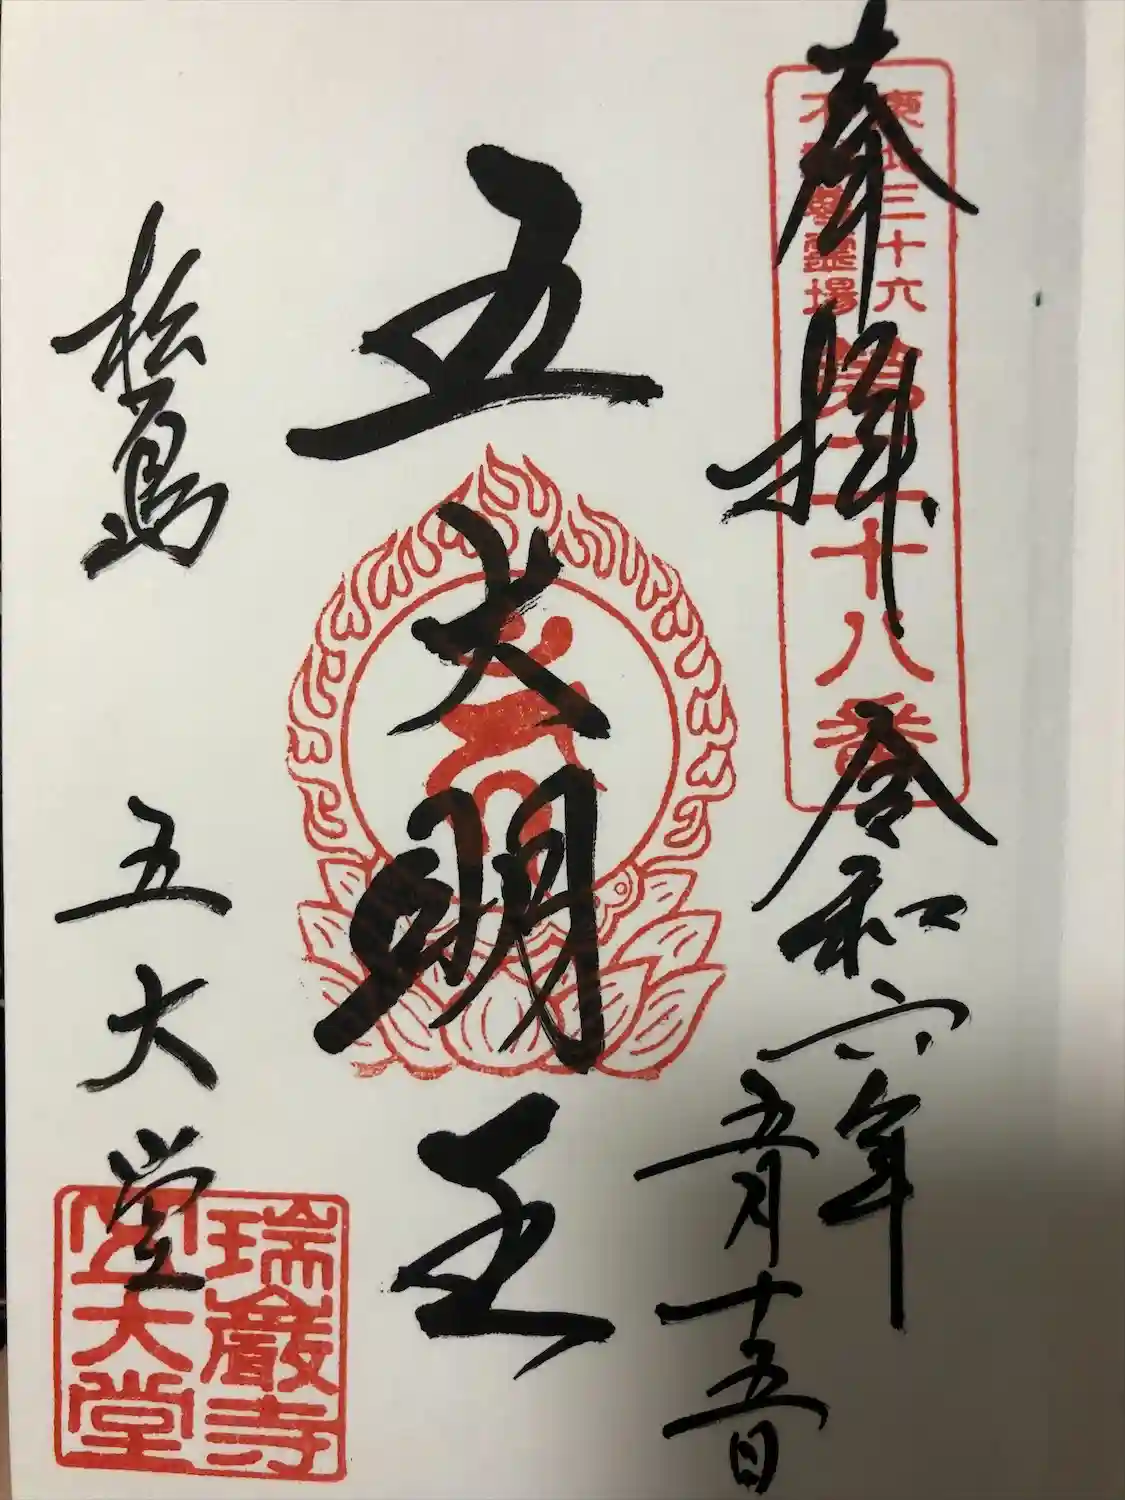 奉拝
東北三十六
不動尊霊場
第二十八番
令和六年
五月十五日
五大明王
松島
五大堂
瑞巖寺
五大堂